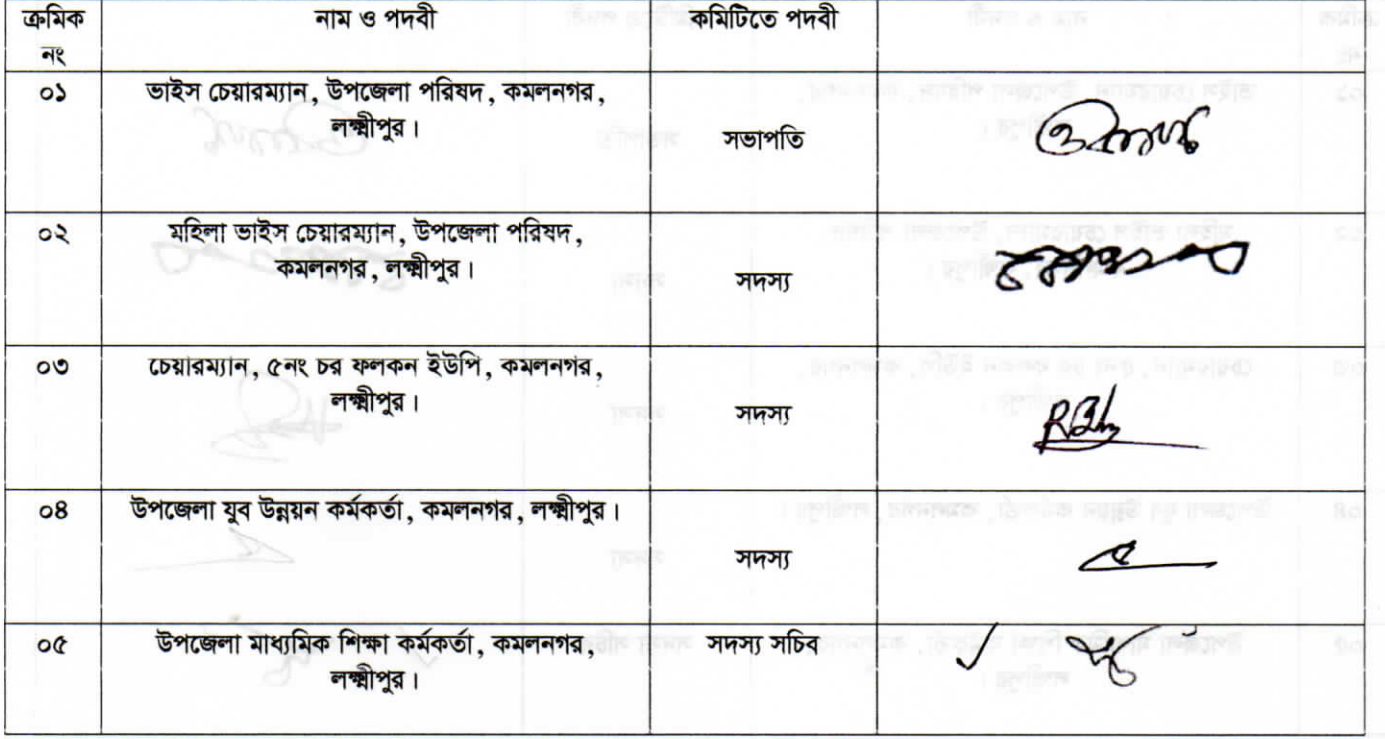 ক্রমিক নাম ও পদবী কমিটিতে পদবী
নং
০১ ভাইস চেয়ারম্যান, উপজেলা পরিষদ, কমলনগর,
লক্ষ্মীপুর। সভাপতি
০২ মহিলা ভাইস চেয়ারম্যান, উপজেলা পরিষদ,
কমলনগর, লক্ষ্মীপুর। সদস্য
০৩ চেয়ারম্যান, ৫নং চর ফলকন ইউপি, কমলনগর,
লক্ষ্মীপুর। সদস্য
০৪ উপজেলা যুব উন্নয়ন কর্মকর্তা, কমলনগর, লক্ষ্মীপুর।
সদস্য
০৫ উপজেলা মাধ্যমিক শিক্ষা কর্মকর্তা, কমলনগর, সদস্য সচিব
লক্ষ্মীপুর।